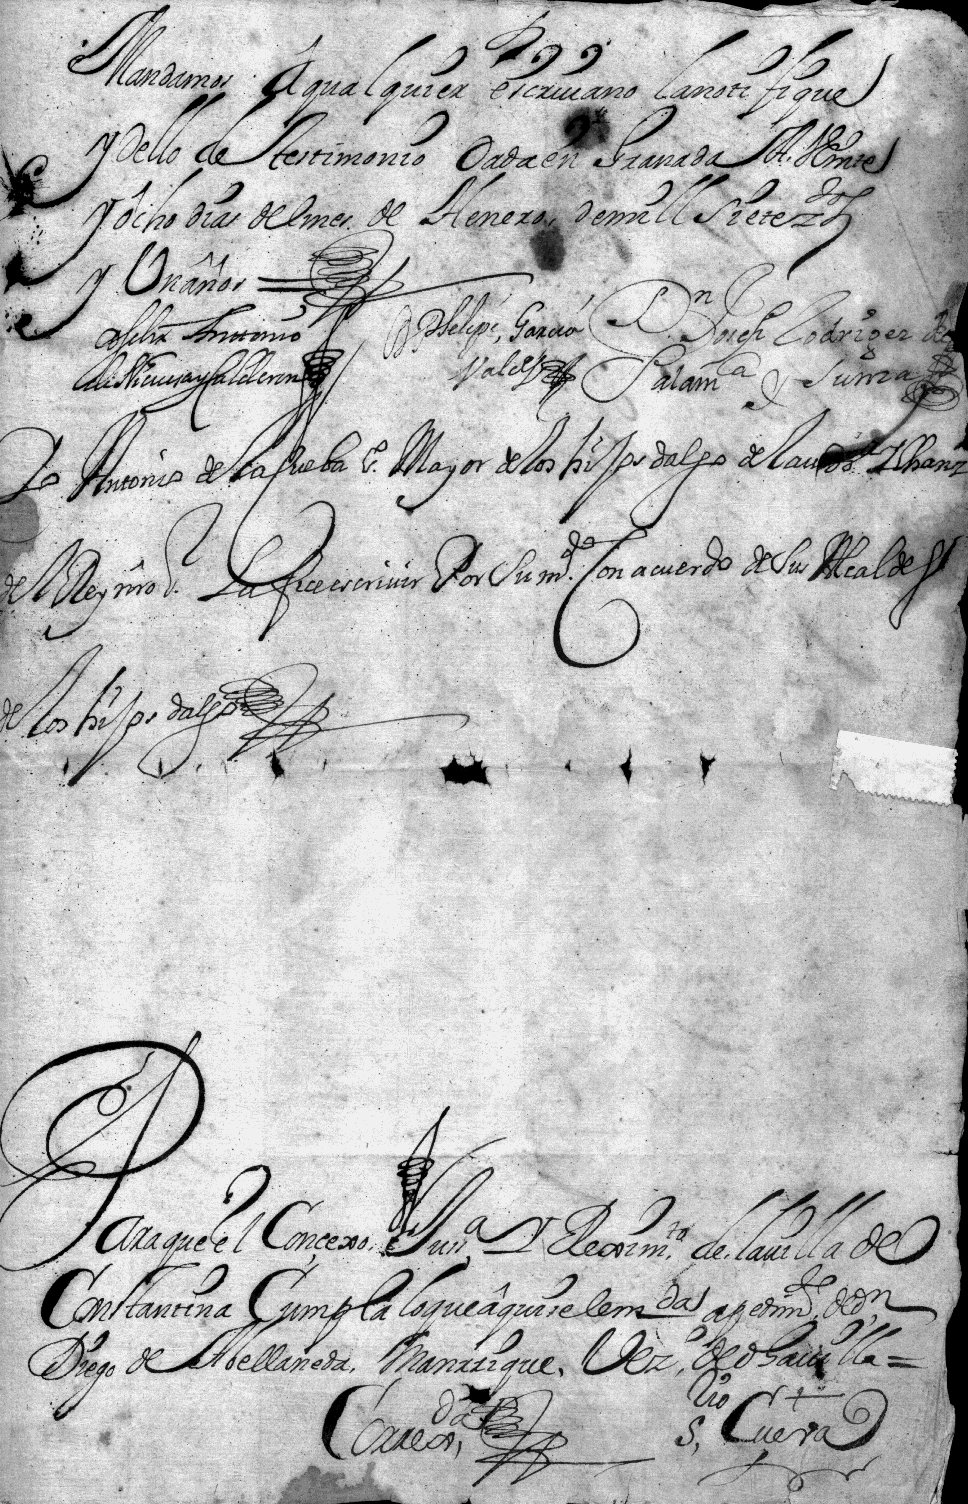 Mandamos A qualquier escriuano lanotifique
y dello de testimonio Dada en Granada A Veinte
y ôcho dias del mes de Henero, demill Siete zdos
y Un años
Antonio
Phelipe Garcia Dn Joseph Rodriguez de
Valdes Salamca y
Yo Antonio de la Cueba Sno Mayor de los hijosdalgo de la
del Rey nro Sr La fice escriuir Por Su mdo Con acuerdo de Sus Alcaldes
de los hijos dalgo
Para que el Concexo, Jusa Y Rexim.to de la uilla de
Constantina Cumpla loque âqui se lem da a pedimto de dn
Diego de Abellaneda, Manrrique, Vezo de dha uilla =
Correxda,
S, rio Cueva